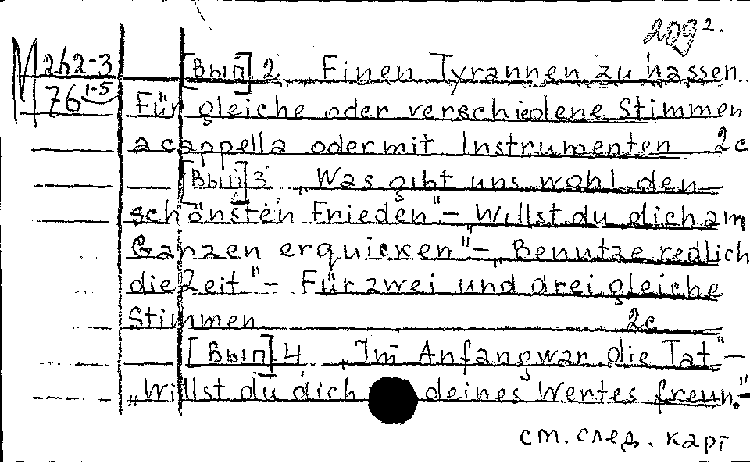 2092.
М 262-3 [Вып] 2 „Einen Tyrannen zu hassen
76 1-5 Für gleiche oder verschiedene Stimmen
a cappella oder mit Instrumenten 2c
[Вып] 3 „Was gibt uns wohl den
schönsten Frieden"-„Willst du dich am
Ganzen erquicken"-„Benutze redlich
die Zeit"- Für zwei und drei gleiche
Stimmen 2c
[Вып] 4 „Im Anfang war die Tat"-
„Willst du dich deines Wertes freun"-
см. след. карт